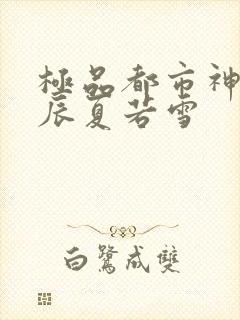 極品都市神
辰夏若雪
白鷺成雙